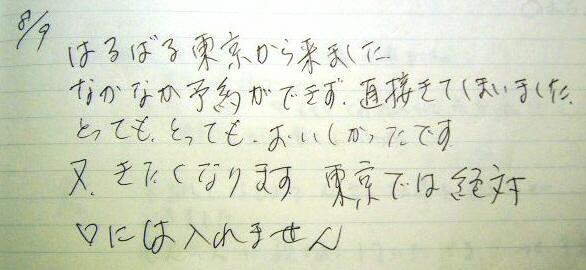 8/9
はるばる東京から来ました
なかなか予約ができず、直接きてしまいました。
とっても、とっても、おいしかったです
又、きたくなります 東京では絶対
♡には入れません